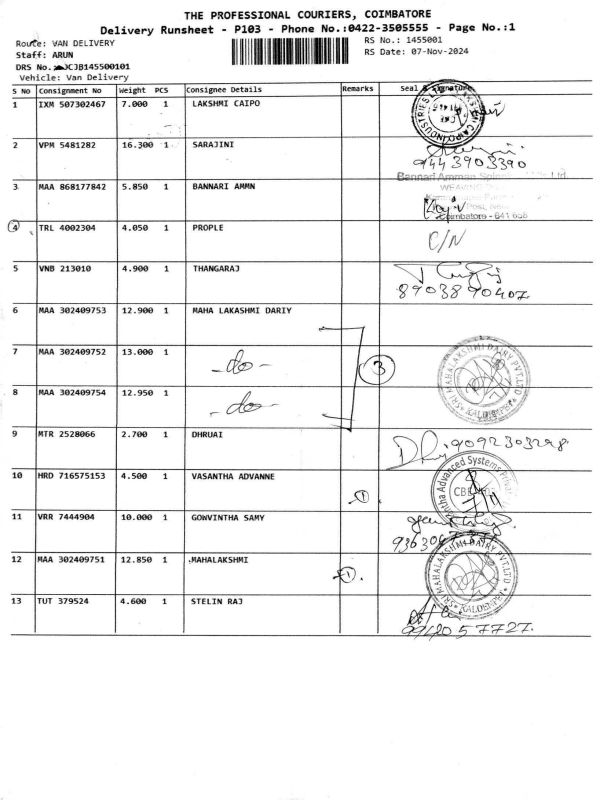 THE PROFESSIONAL COURIERS, COIMBATORE
Delivery Runsheet - P103 - Phone No.:0422-3505555 - Page No.:1
Route: VAN DELIVERY RS No.: 1455001
Staff: ARUN RS Date: 07-Nov-2024
DRS No. CJB145500101
Vehicle: Van Delivery
S No Consignment No Weight PCS Consignee Details Remarks Seal & Signature
1 IXM 507302467 7.000 1 LAKSHMI CAIPO
2 VPM 5481282 16.300 1 SARAJINI
9443903390
3 MAA 868177842 5.850 1 BANNARI AMMN
Bannari Amman
WEAVING
Post,
Coimbatore - 641
4 TRL 4002304 4.050 1 PROPLE C/N
5 VNB 213010 4.900 1 THANGARAJ
8903890407
6 MAA 302409753 12.900 1 MAHA LAKASHMI DARIY
7 MAA 302409752 13.000 1 -do- 3
SRI MAHALAKSHMI DAIRY PVT.LTD
8 MAA 302409754 12.950 1 -do-
9 MTR 2528066 2.700 1 DHRUAI 9092303298
10 HRD 716575153 4.500 1 VASANTHA ADVANNE 1
Advanced Systems
11 VRR 7444904 10.000 1 GOWVINTHA SAMY
12 MAA 302409751 12.850 1 .MAHALAKSHMI 1
SRI MAHALAKSHMI DAIRY PVT.LTD
13 TUT 379524 4.600 1 STELIN RAJ